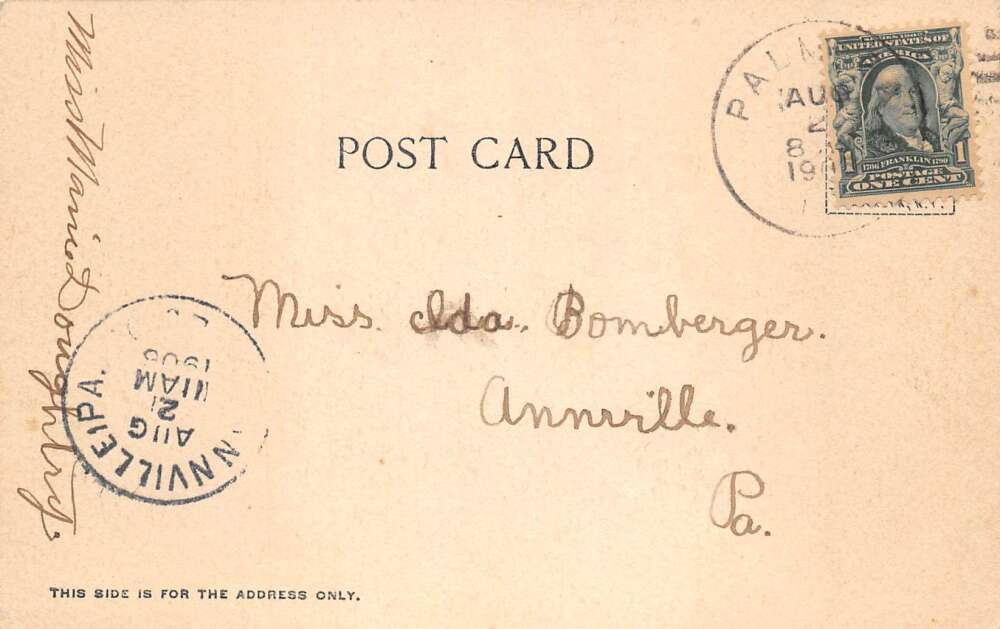 Miss Mamie Doughtry.
POST CARD
PALM
AUG
8 A
190
SERIES 1902
UNITED STATES OF
AMERICA
1706 FRANKLIN 1790
1 1
POSTAGE
ONE CENT
Miss. Ida. Bomberger.
Annville.
Pa.
NNVILLE PA.
AUG
2
11 AM
1906
THIS SIDE IS FOR THE ADDRESS ONLY.